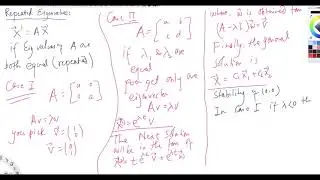 Repeated Eigenvalues:
Ẋ = A X
if Eq values of A are
both equal (repeated)
Case I
A = [a 0
0 a]
Av = λv
you pick v⃗ = (1
0)
v⃗ = (0
1)
Case II
A = [a b
c d]
if λ₁ & λ₂ are
equal
you get only one
eigenvector
Av = λv
X⃗₁ = e^λt v⃗
The Next Solution
will be in the form of
X⃗₂ = t e^λt v⃗ + e^λt w⃗
where w⃗ is obtained from
(A - λI) w⃗ = v⃗
Finally, the general
Solution is
X⃗ = C₁X⃗₁ + C₂X⃗₂
Stability of (0,0)
In Case I if λ<0 th